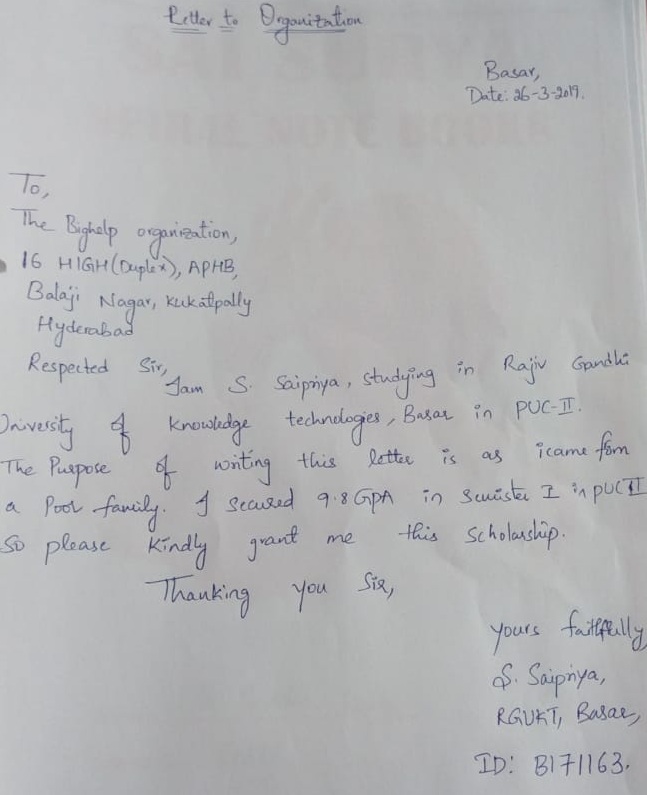 Letter to Organization
Basar,
Date: 26-3-2019.
To,
The Bighelp organization,
16 HIGH (Duplex), APHB,
Balaji Nagar, kukatpally
Hyderabad
Respected Sir,
Iam S. Saipriya, studying in Rajiv Gandhi
University of knowledge technologies, Basar in PUC-II.
The Purpose of writing this letter is as icame form
a Poor family. I secured 9.8 GPA in Semister I in PUC II
So please kindly grant me this scholarship.
Thanking you Sir,
yours faithfully
S. Saipriya,
RGUKT, Basar,
ID: B171163.